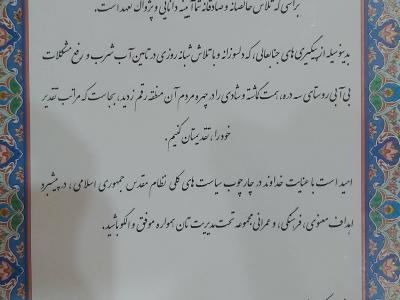 براستی که تلاش خالصانه و صادقانه شما آیینه دانایی و پژواک تعهد است،
بدینوسیله از پیگیری های جنابعالی، که دلسوزانه و با تلاش شبانه روزی در تامین آب شرب و رفع مشکلات
بی آبی روستای سه دره، همت گماشته و شادی را در چهره مردم آن منطقه رقم زدید، بجاست که مراتب تقدیر
خود را، تقدیمتان کنیم.
امید است با عنایت خداوند در چارچوب سیاست های کلی نظام مقدس جمهوری اسلامی، در پیشبرد
اهداف معنوی، فرهنگی، و عمرانی مجموعه تحت مدیریت تان همواره موفق و الگو باشید.